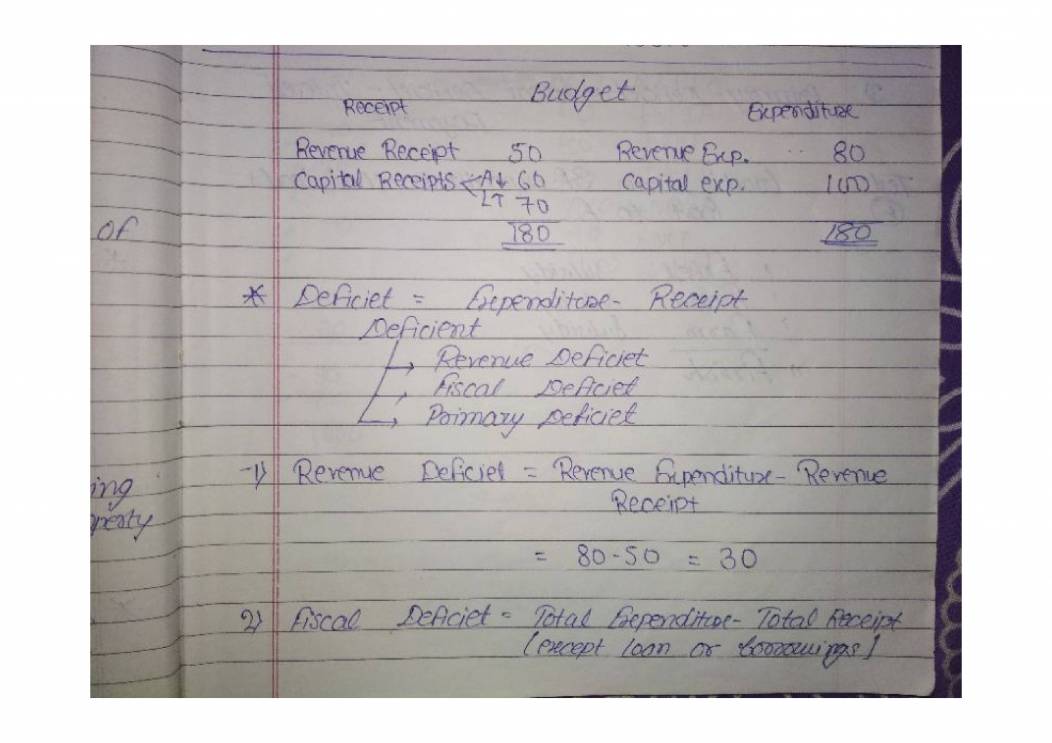 Budget
Receipt Expenditure
Revenue Receipt 50 Revenue Exp. 80
Capital Receipts A↓ 60 Capital exp. 100
L↑ 70
180 180
of
* Deficiet = Expenditure - Receipt
Deficient
→ Revenue Deficiet
Fiscal Deficiet
→ Primary Deficiet
1) Revenue Deficiet = Revenue Expenditure - Revenue
Receipt
ing
operty
= 80 - 50 = 30
2) Fiscal Deficiet = Total Expenditure - Total Receipt
(except loan or borrowings)